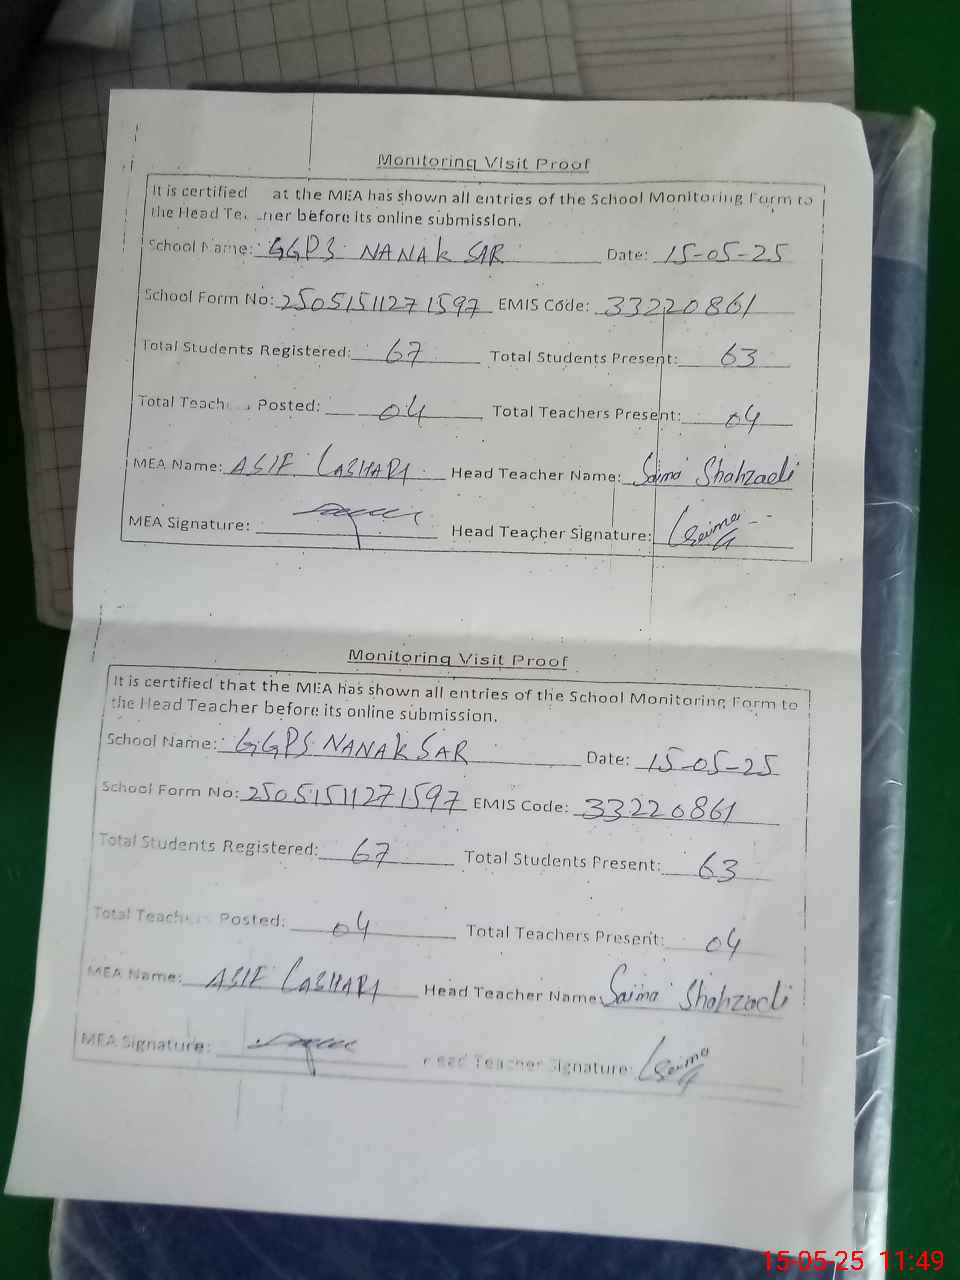 Monitoring Visit Proof
It is certified at the MEA has shown all entries of the School Monitoring Form to
the Head Te. .ner before its online submission.
School Name: GGPS NANAK SAR Date: 15-05-25
School Form No: 25051511271597 EMIS Code: 33220861
Total Students Registered: 67 Total Students Present: 63
Total Teach Posted: 04 Total Teachers Present: 04
MEA Name: ASIF LASHARI Head Teacher Name: Saima Shahzadi
MEA Signature: Head Teacher Signature: Saima
Monitoring Visit Proof
It is certified that the MEA has shown all entries of the School Monitoring Form to
the Head Teacher before its online submission.
School Name: GGPS NANAK SAR Date: 15-05-25
School Form No: 25051511271597 EMIS Code: 33220861
Total Students Registered: 67 Total Students Present: 63
Total Teachers Posted: 04 Total Teachers Present: 04
MEA Name: ASIF LASHARI Head Teacher Name: Saima Shahzadi
MEA Signature: Head Teacher Signature: Saima
15-05-25 11:49